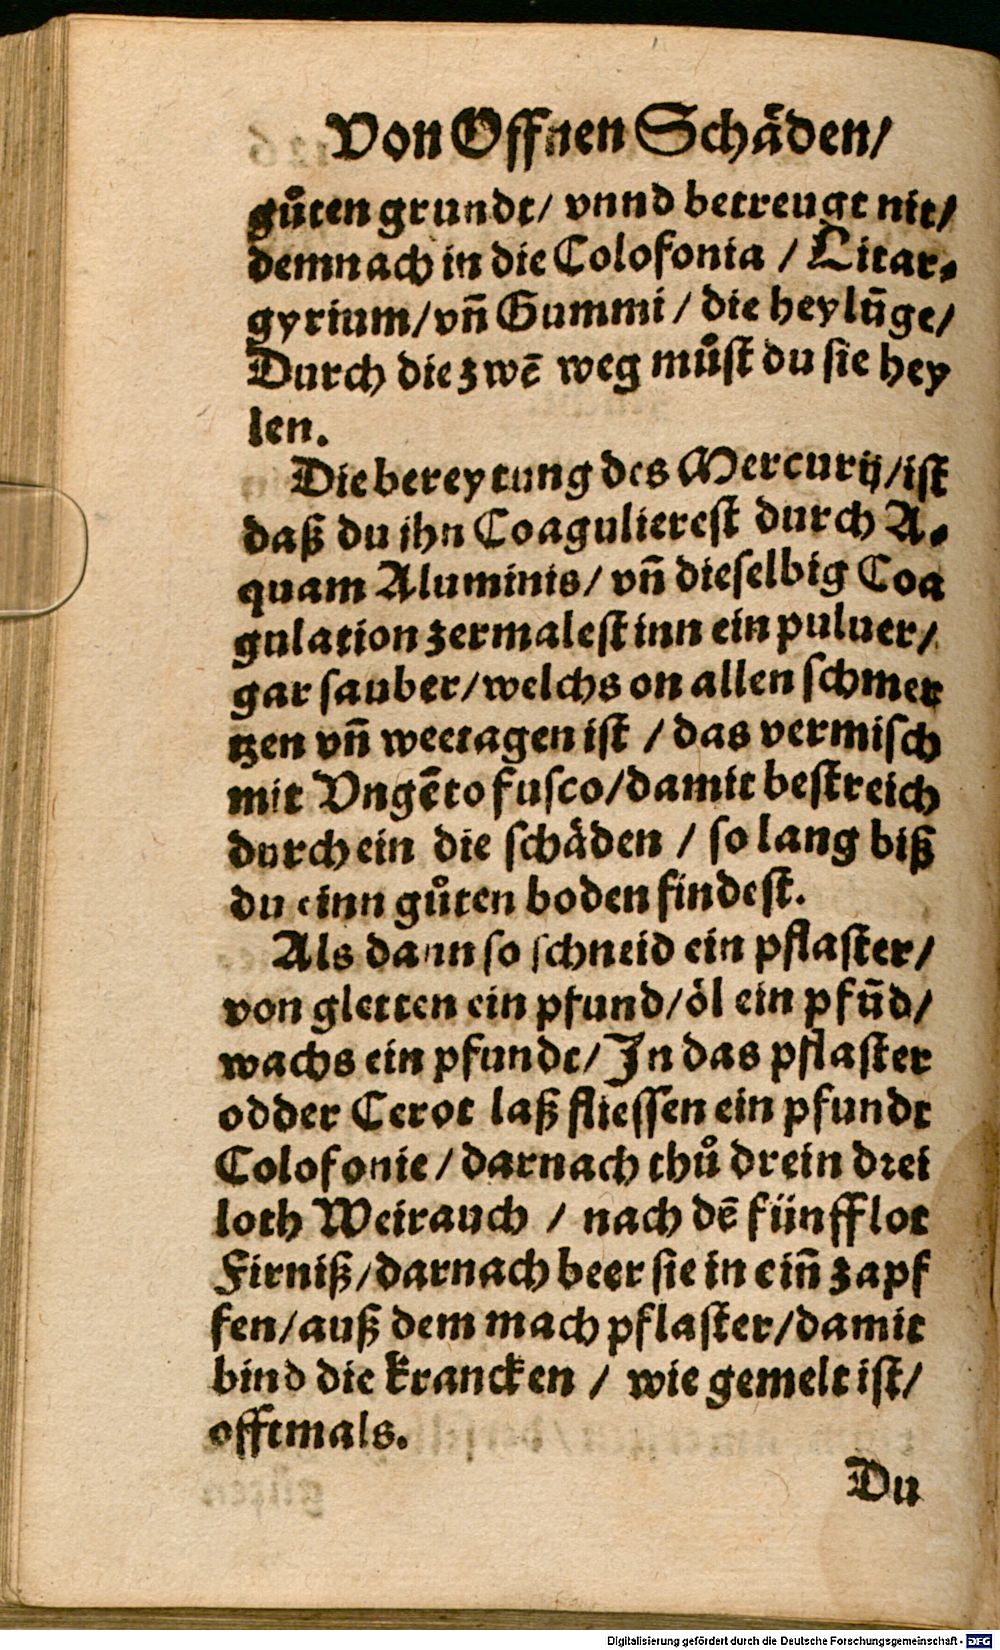 Von Offnen Schäden/
gůten grundt/ vnnd betreugt nit/
demnach in die Colofonia / Litar⸗
gyrium/vñ Gummi / die heylũge/
Durch die zwẽ weg můſt du ſie hey
len.
Die bereytung des Mercurij/iſt
daß du jhn Coaguliereſt durch A⸗
quam Aluminis/ vñ dieſelbig Coa
gulation zermaleſt inn ein puluer/
gar ſauber/welchs on allen ſchmer
tzen vñ weetagen iſt / das vermiſch
mit Vngẽto fuſco/damit beſtreich
durch ein die ſchäden / ſo lang biß
du einn gůten boden findeſt.
Als dann ſo ſchneid ein pflaſter/
von gletten ein pfund/öl ein pfũd/
wachs ein pfundt/ In das pflaſter
odder Cerot laß flieſſen ein pfundt
Colofonie/darnach thů drein drei
loth Weirauch / nach dẽ fünff lot
Firniß/darnach beer ſie in eiñ zapf
fen/auß dem mach pflaſter/damit
bind die krancken / wie gemelt iſt/
offtmals.
Du
Digitalisierung gefördert durch die Deutsche Forschungsgemeinschaft - DFG